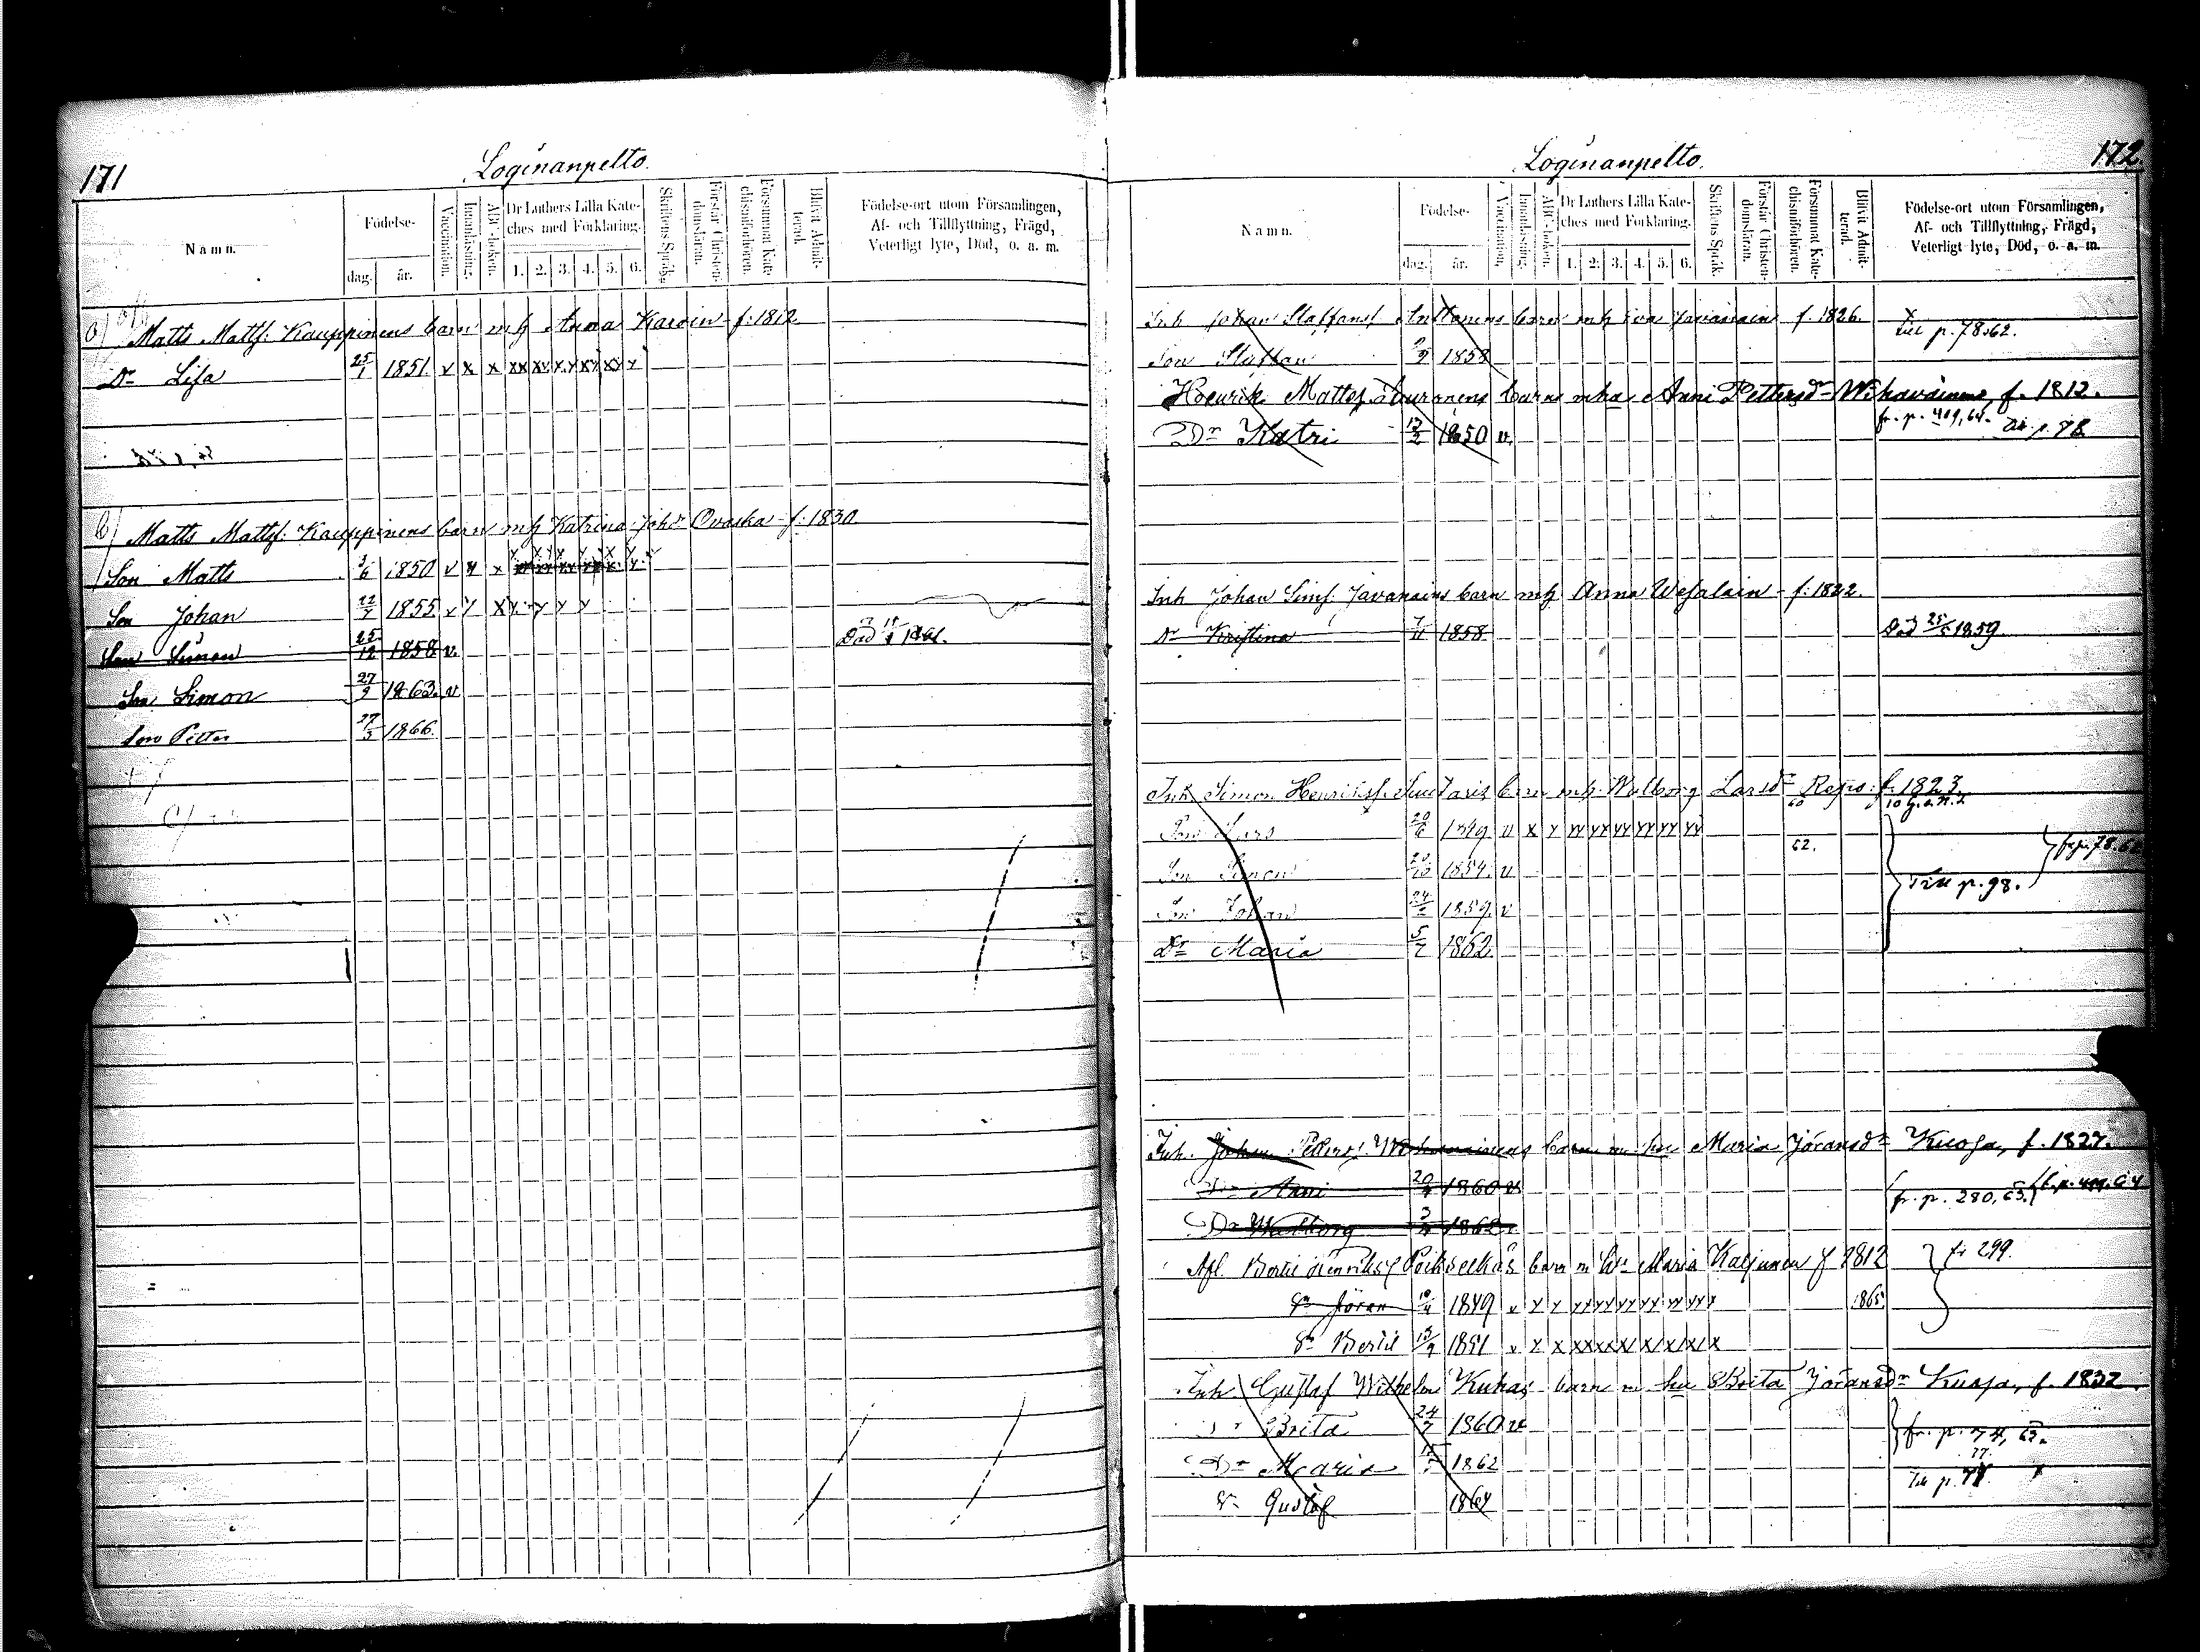 171
Loginanpelto.
Namn.
Födelse-
dag. år.
Vaccination.
Innanläsning.
ABC-boken.
Dr Luthers Lilla Kateches med Förklaring.
1. 2. 3. 4. 5. 6.
Skriftens Språk.
Förstår Christendomsläran.
Försummat Katechismiförhören.
Blifvit Admitterad.
Födelse-ort utom Församlingen,
Af- och Tillflyttning, Frägd,
Veterligt lyte, Död, o. a. m.
Matts Mattss. Kauppinens barn mh Anna Karvin f. 1812
Dr Lisa 25/1 1851 v x x xx xx xx xx xx x
b/ Matts Mattss. Kauppinens barn mh Katrina Johdr Ovaska f. 1830
Son Matts 3/6 1850 v x x
Son Johan 22/7 1855 v x x x x x x
Son Simon 25/12 1858 v. Död 1861.
Son Simon 27/9 1863. v
Son Petter 27/3 1866.
172.
Loginanpelto.
Namn.
Födelse-
dag. år.
Vaccination.
Innanläsning.
ABC-boken.
Dr Luthers Lilla Kateches med Förklaring.
1. 2. 3. 4. 5. 6.
Skriftens Språk.
Förstår Christendomsläran.
Försummat Katechismiförhören.
Blifvit Admitterad.
Födelse-ort utom Församlingen,
Af- och Tillflyttning, Frägd,
Veterligt lyte, Död, o. a. m.
Inh Johan Staffanss Anttonens barn mh Eva f. 1826. till p. 78. 62.
Son Staffan 1858
Henrik Mattss. barn mha Anni Pettersdr Wihavainen, f. 1812.
Dr Katri 13/2 1850 v. fr. p. 409, 64. Till p. 78
Inh Johan Sims. Javanains barn mh Anna Wesalain f. 1822.
Dr Kristina 7/11 1858 Död 25/5 1859.
Inh Simon Henrikss. barn mh Walborg Larsdr Repo f. 1823
Son Lars 20/6 1849 v x x xx xx xx xx xx xx
Son Simon 1854 v 62.
Son Johan 24/2 1859 v Till p. 98.
Dr Maria 5/7 1862
Inh. Johan Petters. barn m. hu Maria Jöransdr Kuosa, f. 1827.
Dr Anni 20/ 1860 v fr. p. 280, 63.
Dr Walborg 3/ 1862
Afl. Bertil Henrikss barn m Hu Maria Kaljunen f 1812 fr 299.
Sn Jöran 10/4 1849 v x x xx xx xx xx xx xx 1865
Sn Bertil 13/9 1851 v x x xx xx xx xx xx x
Inh Gustaf Wilhelm Kukas barn m hu Brita Jöransdr Kuosa, f. 1832.
Brita 24/7 1860 v fr. p. 74, 63.
Dr Maria 1862 Till p. 77
Sn Gustaf 1864